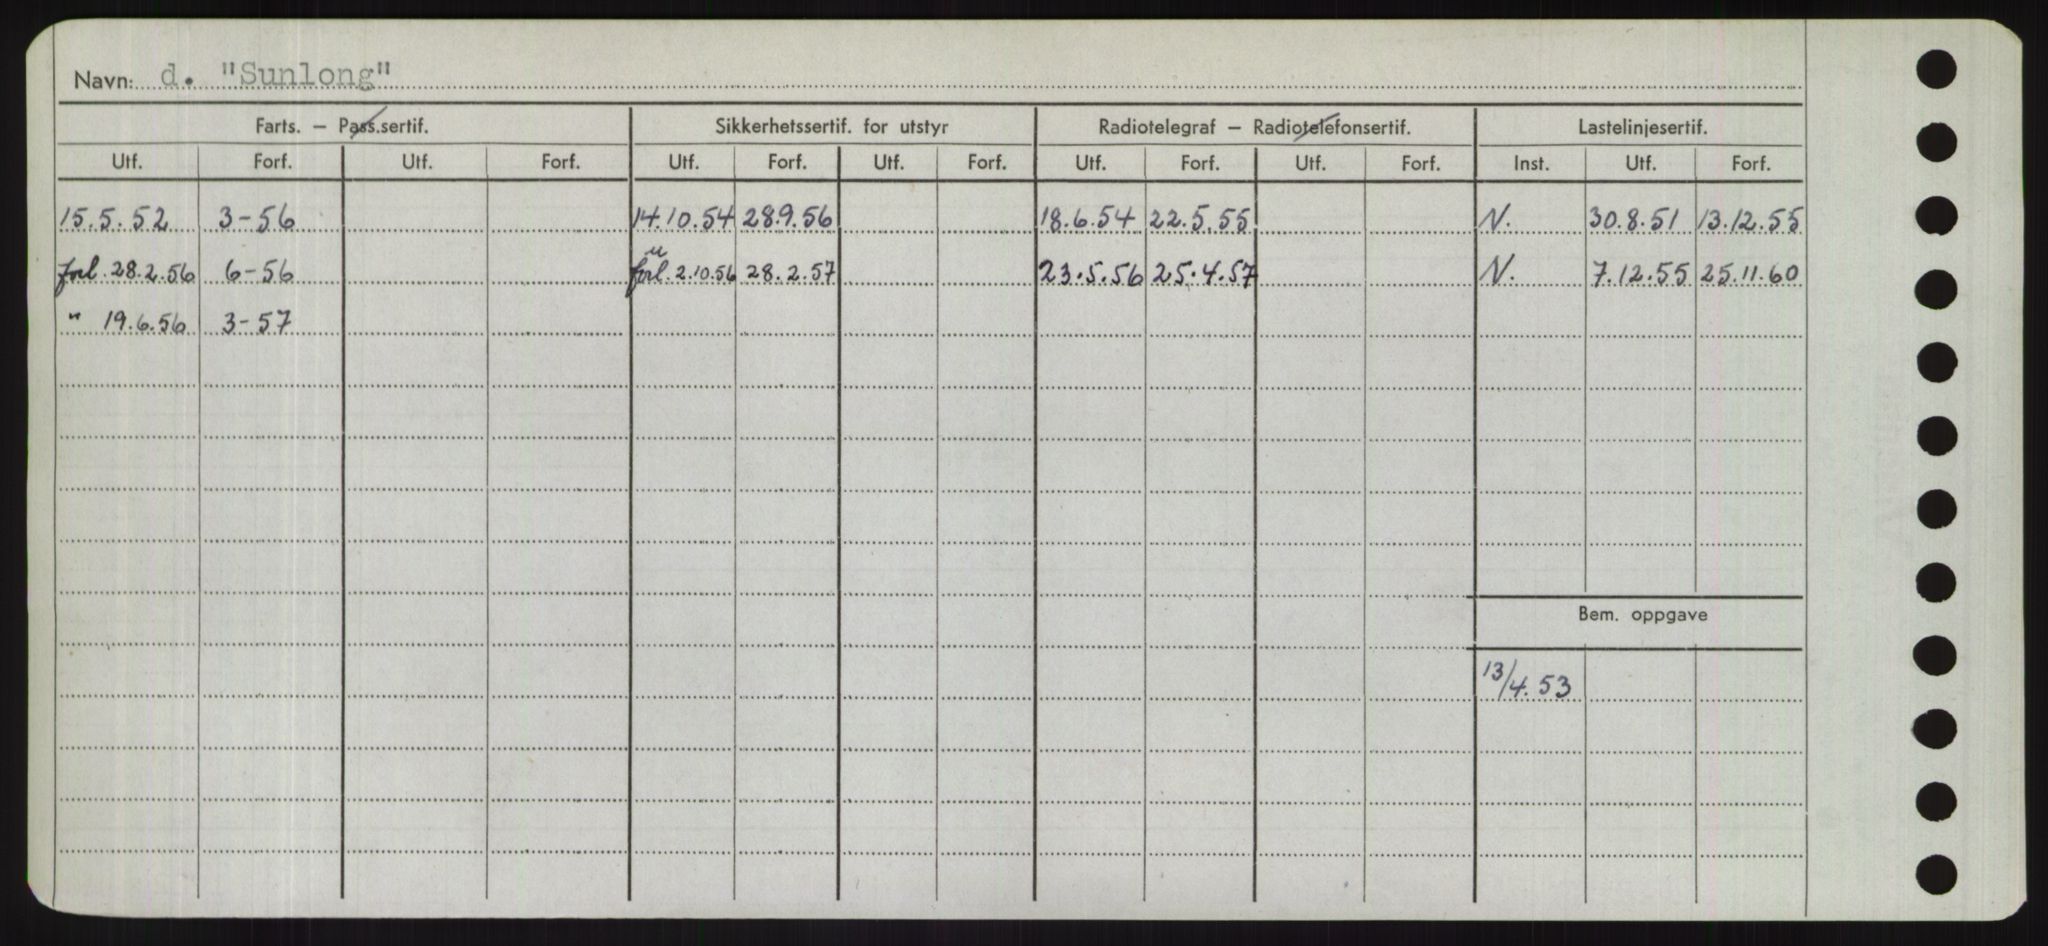 Navn: d. "Sunlong"
Farts. – Pass.sertif. Sikkerhetssertif. for utstyr Radiotelegraf – Radiotelefonsertif. Lastelinjesertif.
Utf. Forf. Utf. Forf. Utf. Forf. Utf. Forf. Utf. Forf. Utf. Forf. Inst. Utf. Forf.
15.5.52 3-56 14.10.54 28.9.56 18.6.54 22.5.55 N. 30.8.51 13.12.55
forl. 28.2.56 6-56 forl. 2.10.56 28.2.57 23.5.56 25.4.57 N. 7.12.55 25.11.60
" 19.6.56 3-57
Bem. oppgave
13/4.53